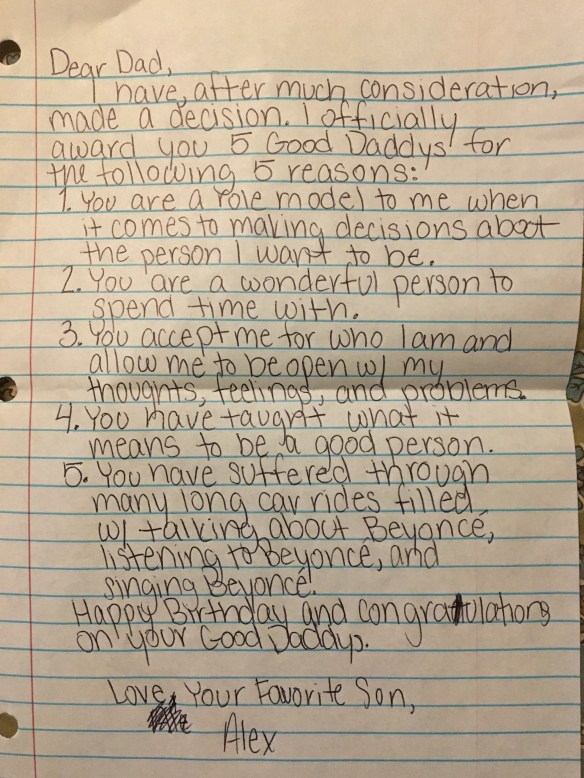 Dear Dad,
I have, after much consideration,
made a decision. I officially
award you 5 Good Daddys' for
the following 5 reasons:
1. You are a role model to me when
it comes to making decisions about
the person I want to be.
2. You are a wonderful person to
spend time with.
3. You accept me for who I am and
allow me to be open w/ my
thoughts, feelings, and problems.
4. You have taught what it
means to be a good person.
5. You have suffered through
many long car rides filled
w/ talking about Beyoncé,
listening to Beyoncé, and
singing Beyoncé!
Happy Birthday and congratulations
on your Good Daddys.
Love, Your Favorite Son,
Alex